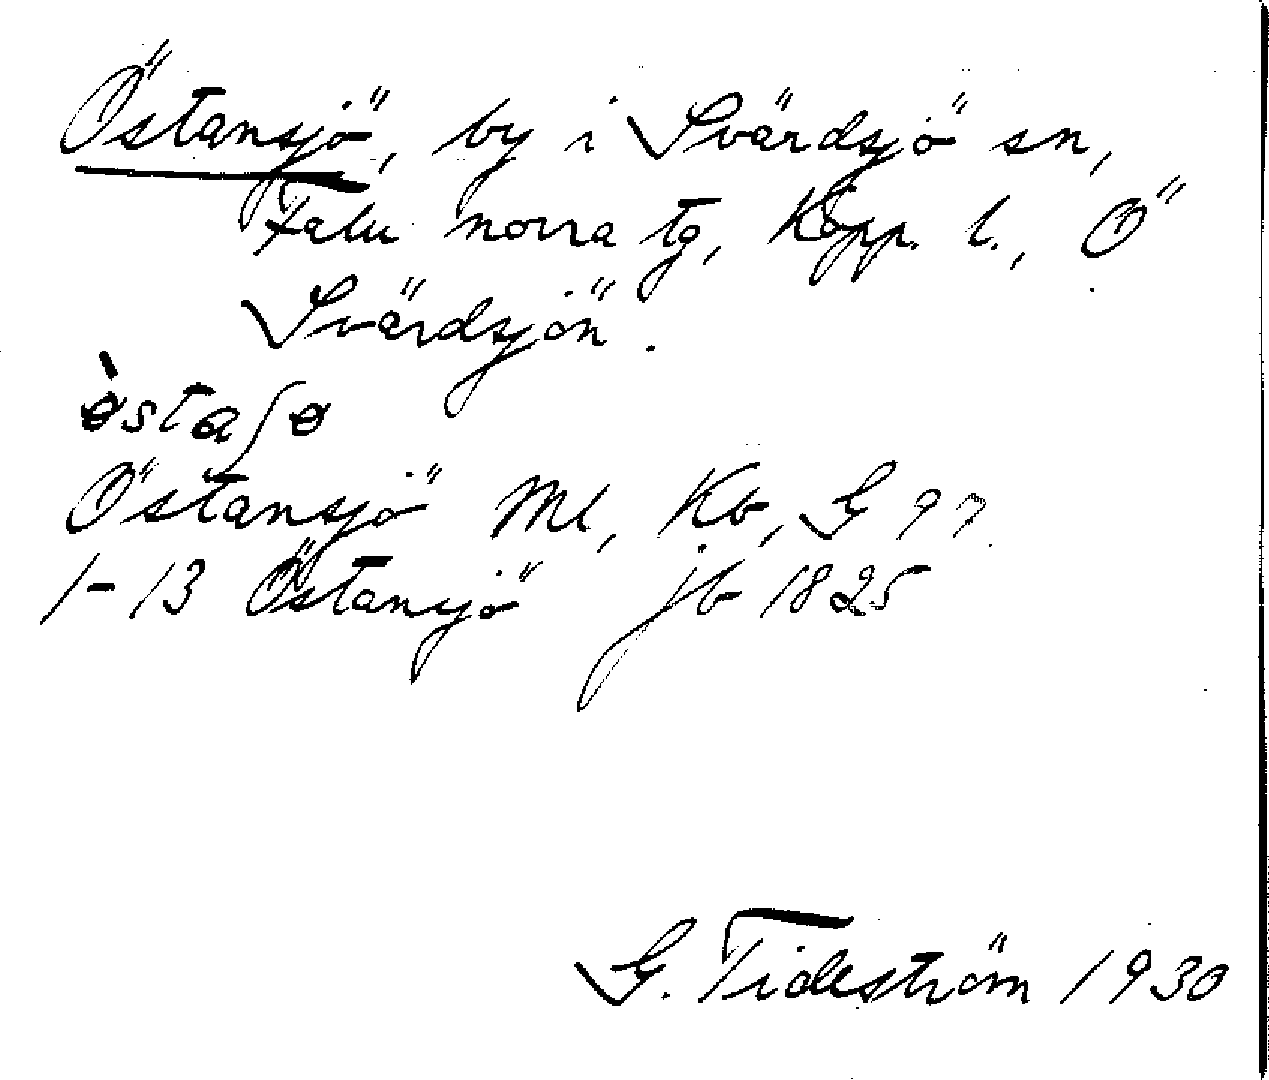 Östansjö, by i Svärdsjö sn,
Falu norra tg, Kopp. l., Ö
Svärdsjön.
østaʃø
Östansjö Ml, Kb, G 97.
1-13 Östansjö jb 1825
G. Tideström 1930